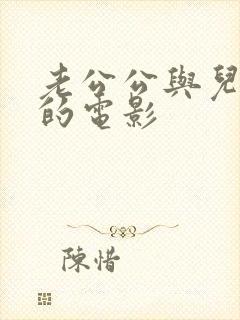 老公公與兒
的電影
陳惜